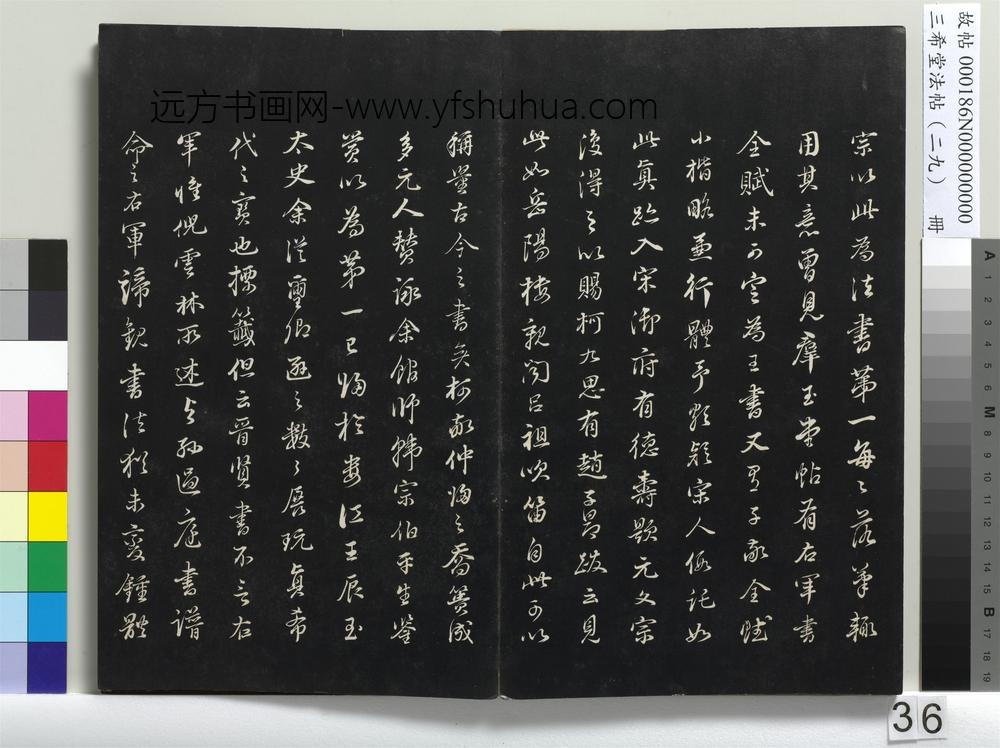 宗以此為法書第一每〻落筆輒
用其意曾見羣玉堂帖有右軍書
全賦未可定為王書又見子敬全賦
小楷略兼行體予頗疑宋人偽託如
此真跡入宋御府有德壽題元文宗
後得之以賜柯九思有趙子昂跋云見
此如岳陽樓親聞呂祖吹笛自此可以
稱量古今之書矣柯敬仲歸之喬簣成
多元人贊詠余館師韓宗伯平生鑒
賞以為第一已歸於婁江王辰玉
太史余從璽卿遜之數〻展玩真希
代之寶也標籤但云晉賢書不言右
軍惟倪雲林所述與孫過庭書譜
命之右軍諦觀書法猶未變鍾體
远方书画网-www.yfshuhua.com
故帖 000186N000000000
三希堂法帖（二九） 冊
A 1 2 3 4 5 6 M 8 9 10 11 12 13 14 15 B 17 18 19
36